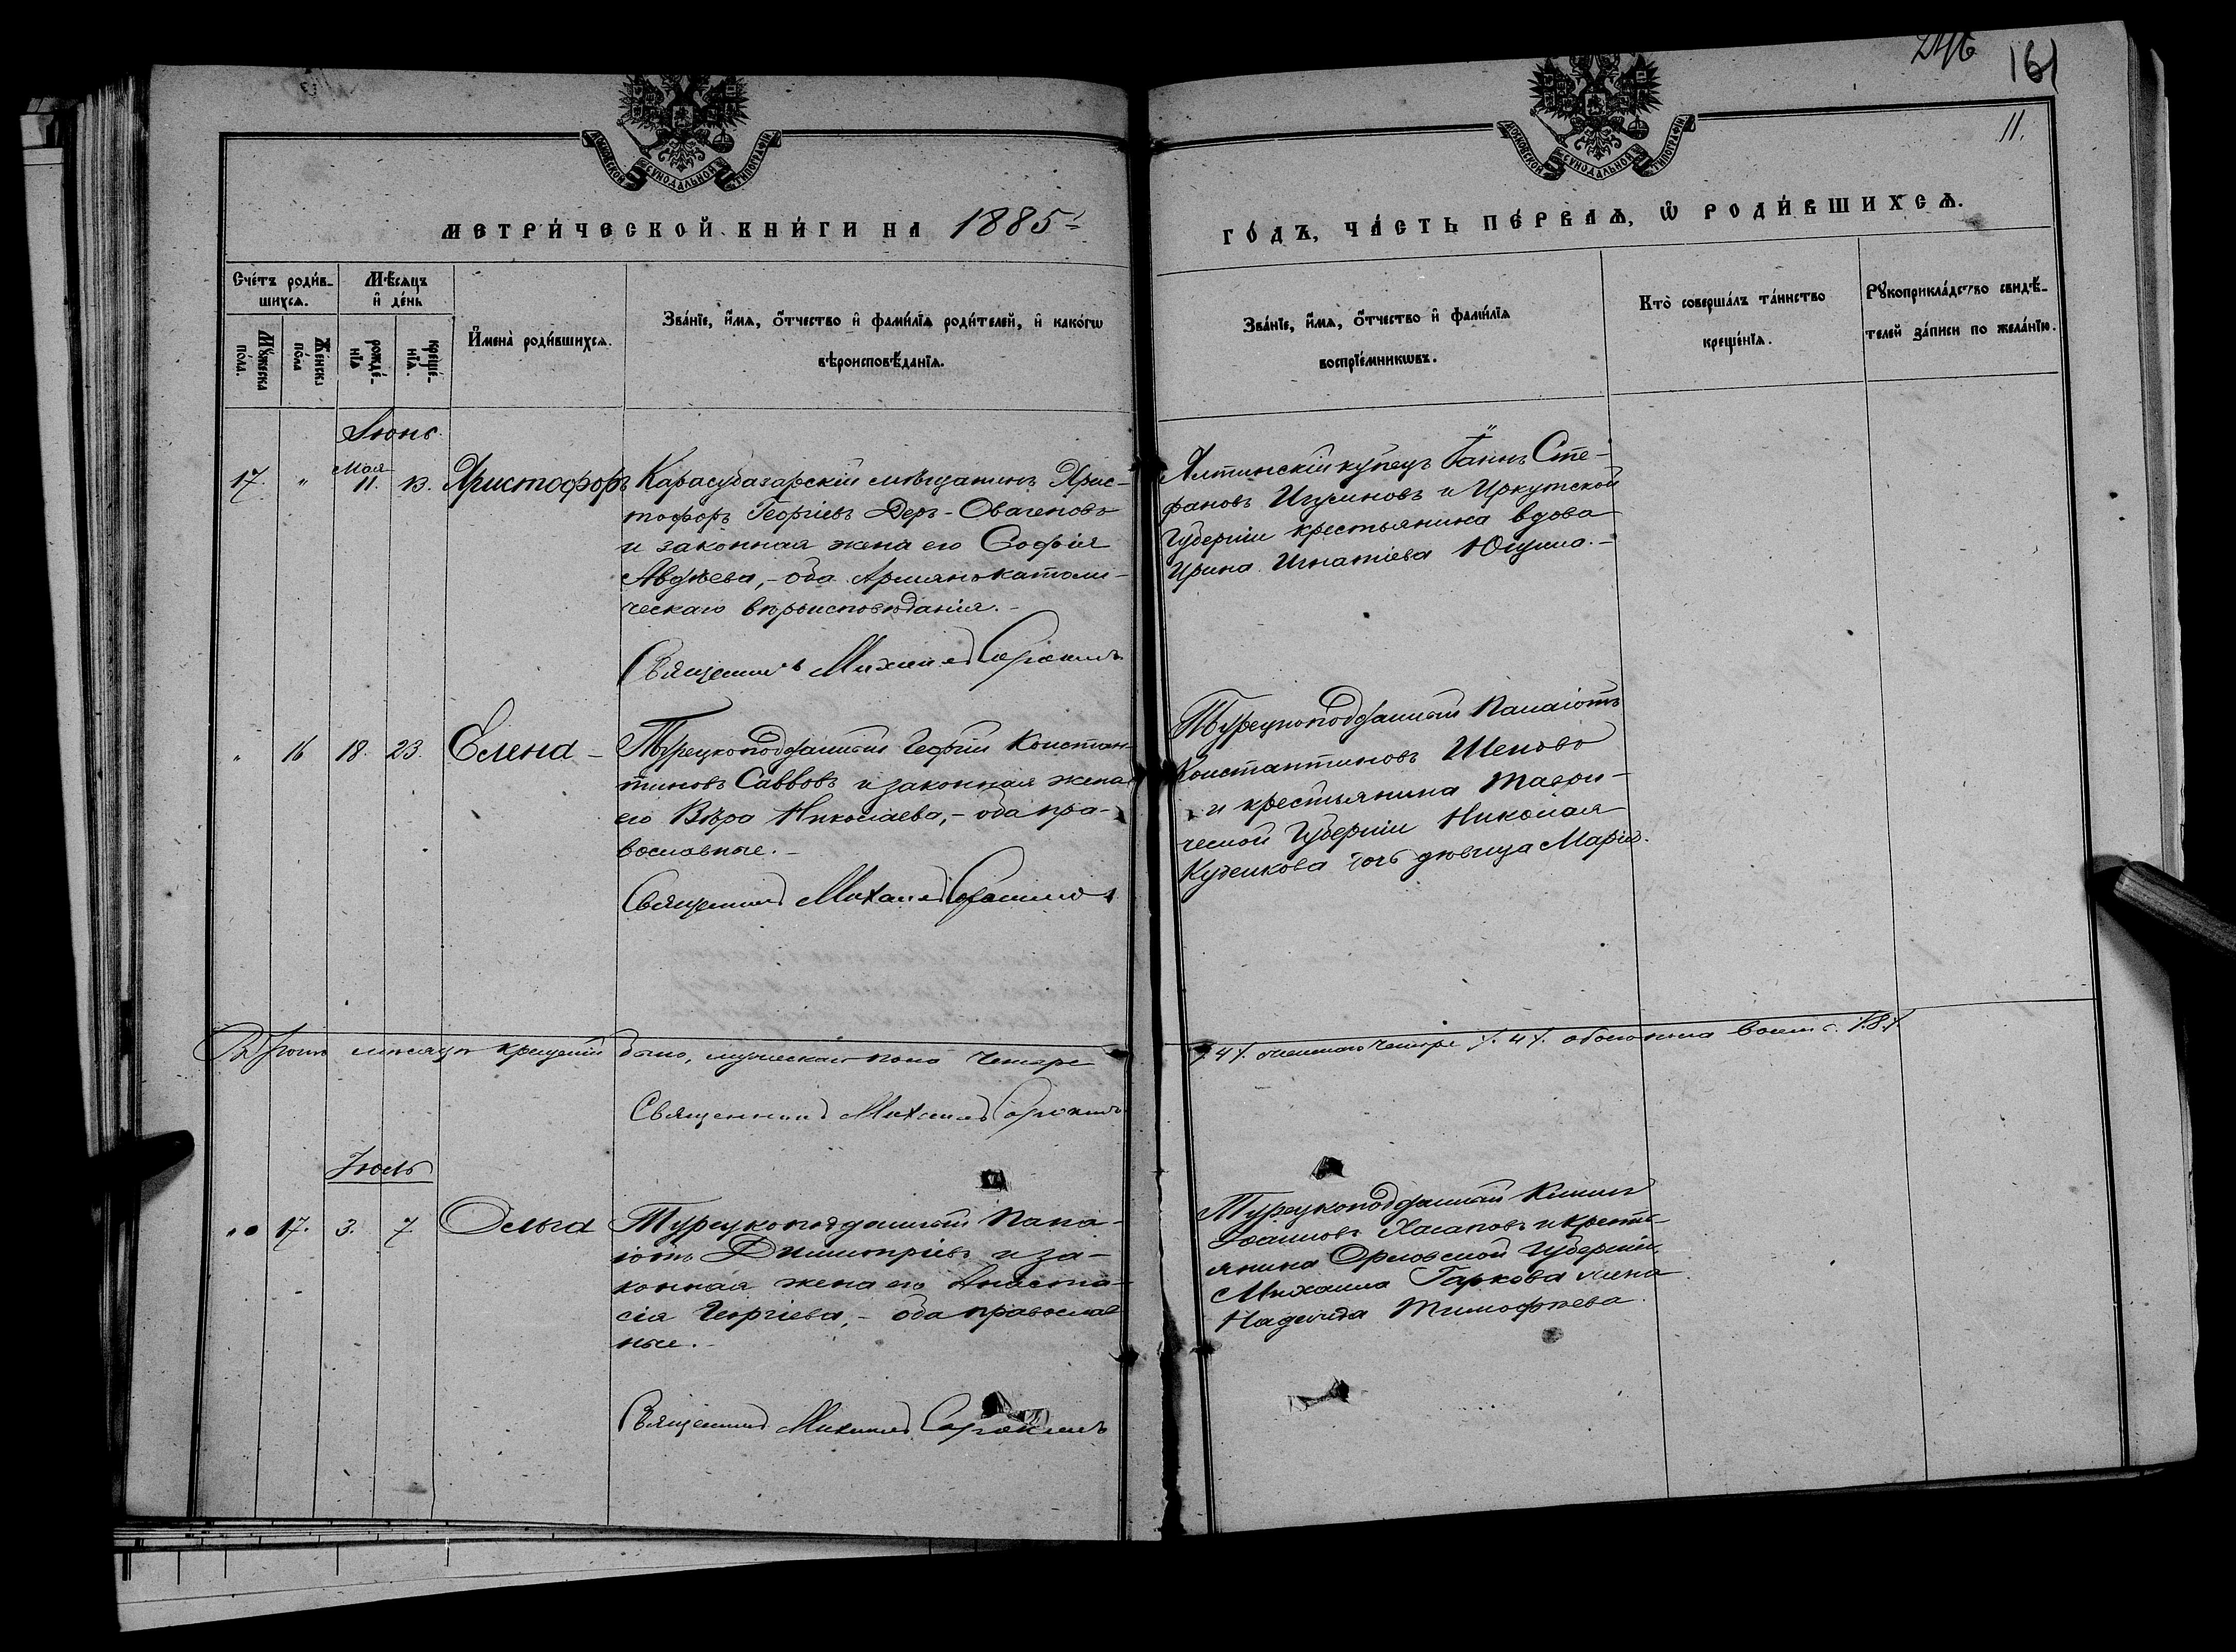 246 161
11.
МОСКОВСКОЙ СѴНОДАЛЬНОЙ ТИПОГРАФІИ
МОСКОВСКОЙ СѴНОДАЛЬНОЙ ТИПОГРАФІИ
МЕТРИ́ЧЕСКОЙ КНИ́ГИ НА 1885
ГО́ДЪ, ЧА́СТЬ ПЕ́РВАѦ, Ѡ҆ РОДИ́ВШИХСѦ.
Сче́тъ роди́в-
шихсѧ.
Мѣ́сѧцъ
и҆ де́нь
Мꙋ́жеска по́ла.
Же́нска по́ла
рожде́-нїѧ
креще́-нїѧ.
И҆мена̀ роди́вшихсѧ.
Зва́нїе, и҆́мѧ, ѻ҆́тчество и҆ фами́лїѧ роди́телей, и҆ како́гѡ
вѣроисповѣ́данїѧ.
Зва́нїе, и҆́мѧ, ѻ҆́тчество и҆ фами́лїѧ
воспрїе́мникѡвъ.
Кто̀ соверша́лъ та́инство
креще́нїѧ.
Рꙋкоприкла́дство свидѣ́-
телей за́писи по жела́нїю.
Іюнь
Мая
17. " 11. 13. Христофоръ
Карасубазарскій мѣщанинъ Хрис-
тофоръ Георгіевъ Деръ-Оваченовъ
и законная жена его Софія
Авдѣева, - оба Армянокатоли-
ческаго вѣроисповѣданія. -
Священникъ Михаилъ Сорокинъ
Ялтинскій купецъ Іаннъ Сте-
фановъ Игуминовъ и Иркутской
Губерніи крестьянина вдова
Ирина Игнатіева -
" 16 18. 23. Елена -
Турецкоподданный Георгій Констан-
тиновъ Саввовъ и законная жена
его Вѣра Николаева, - оба пра-
вославные. -
Священникъ Михаилъ Сорокинъ
Турецкоподданный Панаіотъ
Константиновъ
и крестьянина Таври-
ческой Губерніи Николая
Куденкова дочь дѣвица Марія.
Въ Іюнѣ мѣсяцѣ крещеній было, мужескаго пола четыре
/. 4 /. женскаго четыре /. 4 /. обоего пола восемь /. 8 /.
Священникъ Михаилъ Сорокинъ
Іюль
" 17. 3. 7 Ольга
Турецкоподданный Пана-
іотъ Димитріевъ и за-
конная жена его Анаста-
сія Георгіева, - оба православ
ные. -
Священникъ Михаилъ Сорокинъ
Турецкоподданный
Іоанновъ Хасаповъ и крестъ-
янина Орловской Губерніи,
Михаила Гаркова жена
Надежда Тимофѣева.